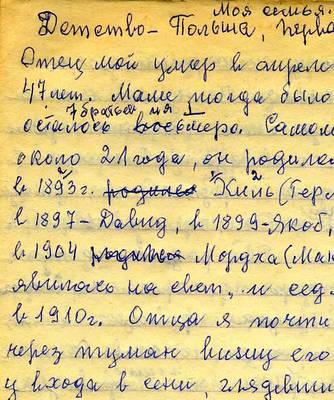 Моя семья.
Детство – Польша, перва
Отец мой умер в апреле
47 лет. Маме тогда было
7 братьев и я
осталось восьмеро. Самом
около 21 года, он родился
в 1893г. родился Хиль (Гер
в 1897 – Давид, в 1899 – Якоб,
в 1904 родился Мордха (Мак
явилась на свет, и сед.
в 1910г. Отца я почти
через туман вижу его
у входа в сени, глядевши